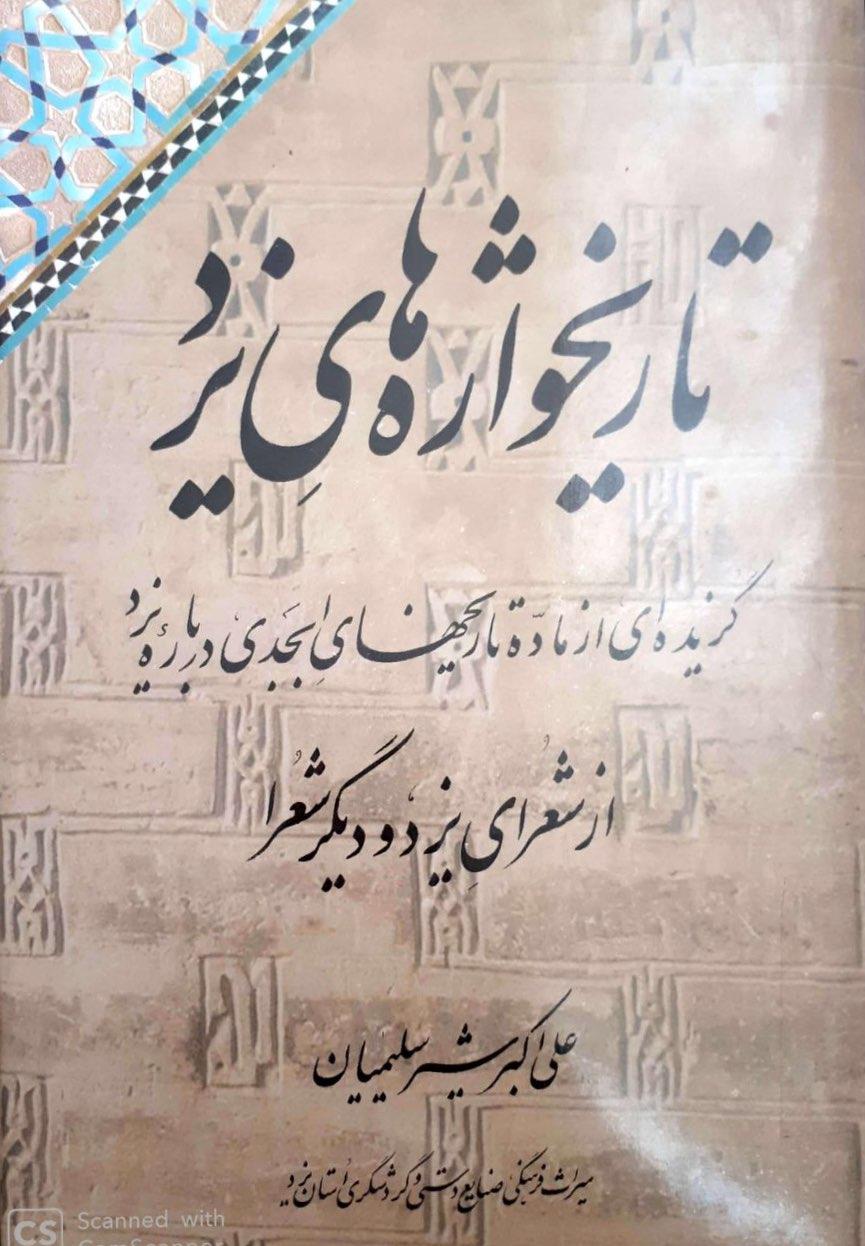 تاریخواژه‌های یزد
گزیده‌ای از مادّة تاریخهایِ ابجَدی دربارۀ یزد
از شعُرایِ یزد و دیگر شعُرا
علی اکبر شیرسلیمیان
میراث فرهنگی صنایع دستی و گردشگری اُستان یزد
CS Scanned with
CamScanner